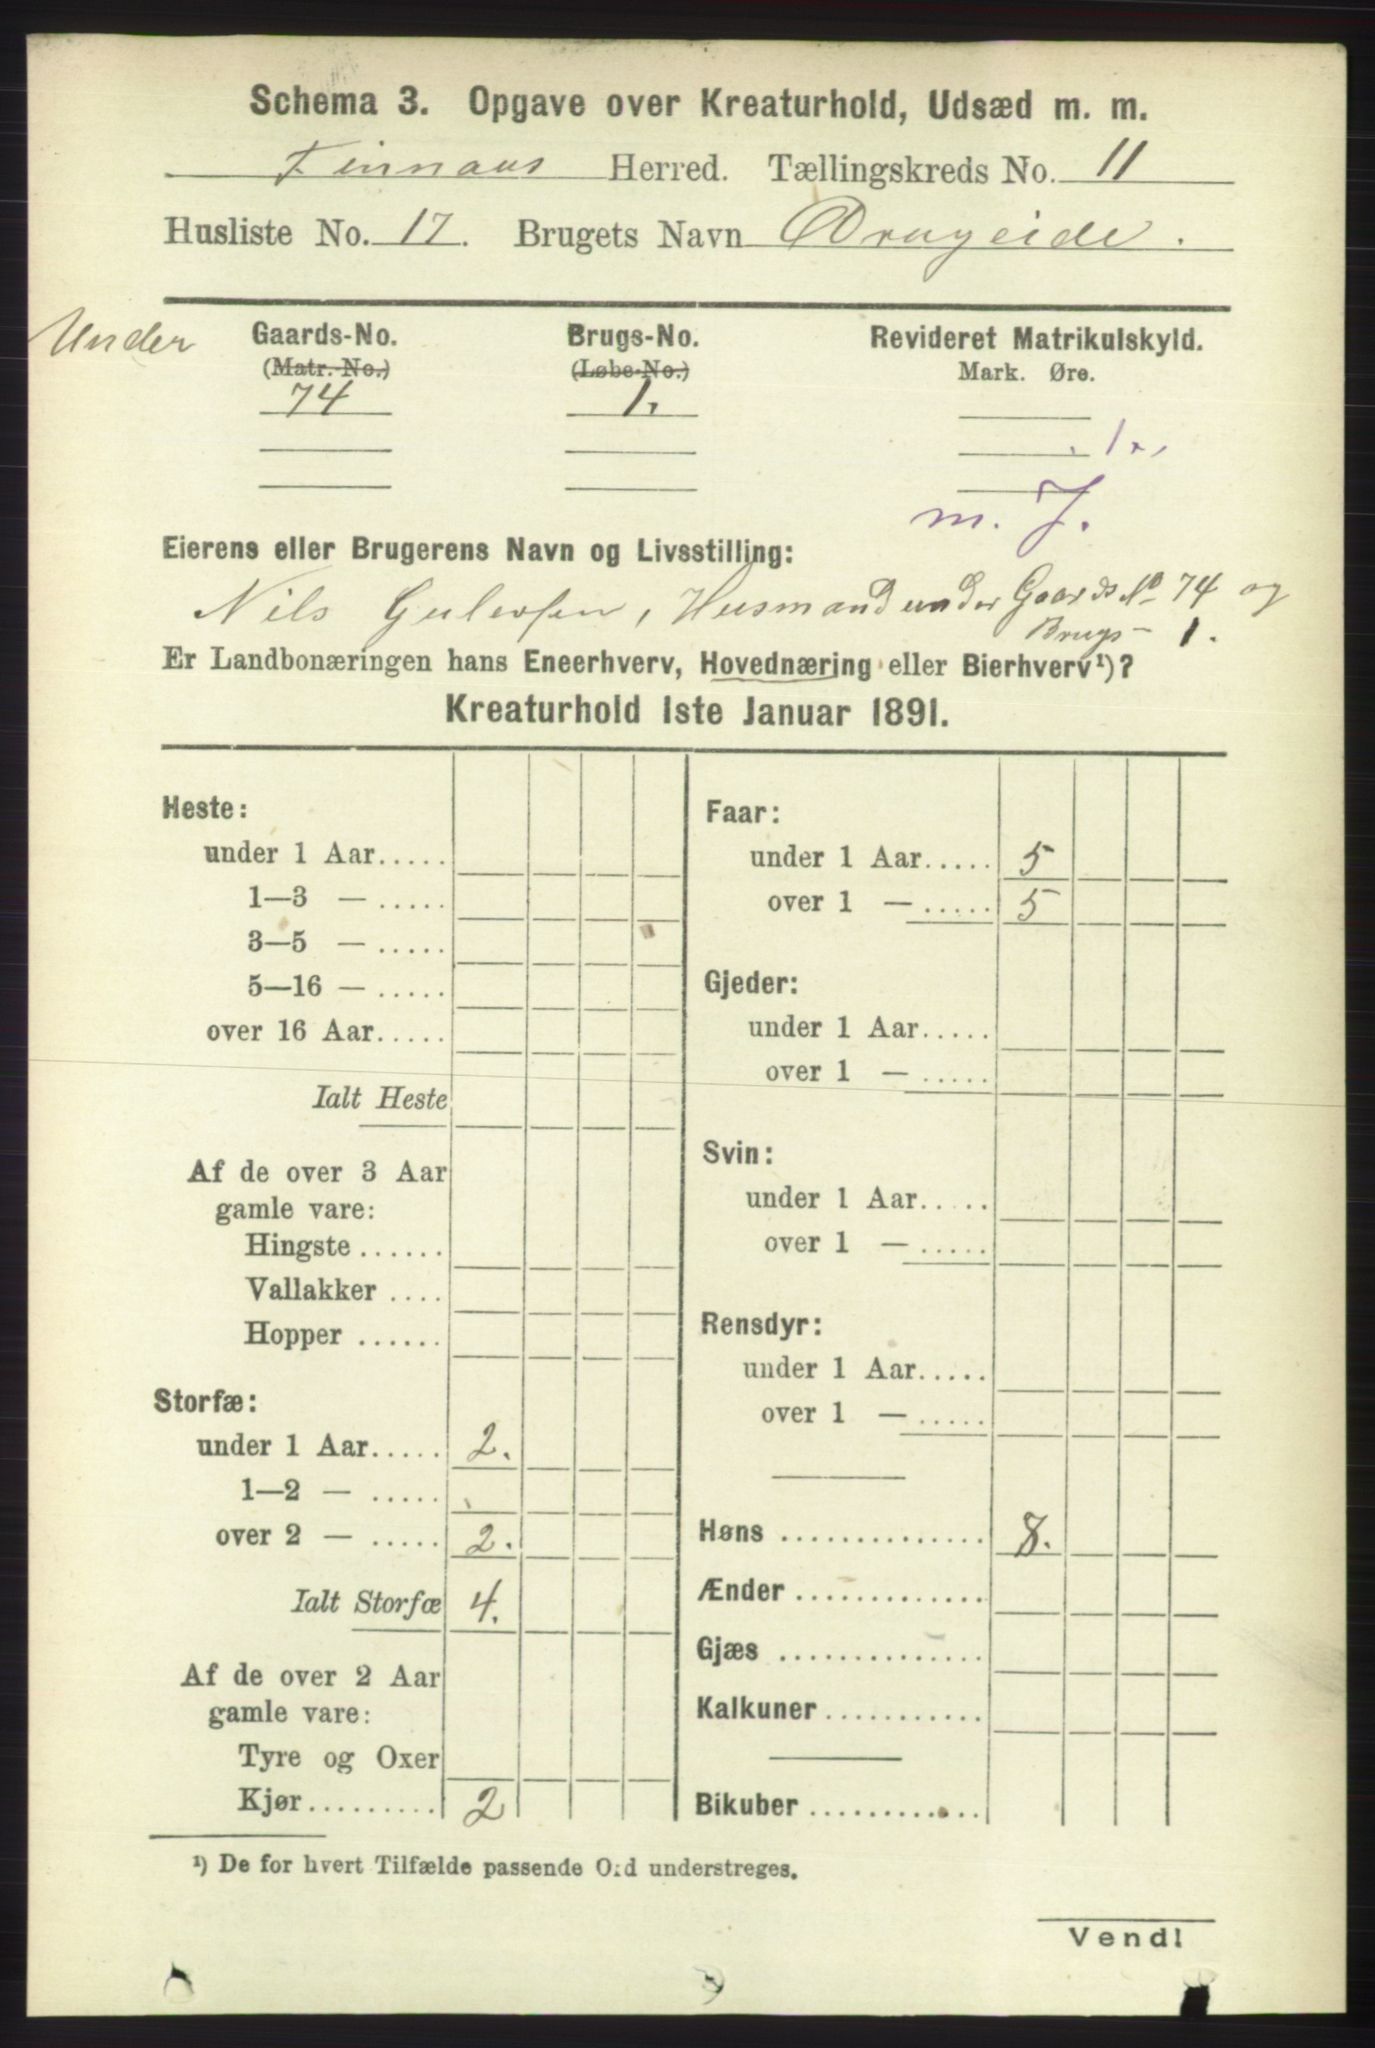 Schema 3. Opgave over Kreaturhold, Udsæd m. m.
Finnaas Herred. Tællingskreds No. 11
Husliste No. 17. Brugets Navn Drageide.
Under
Gaards-No. Brugs-No. Revideret Matrikulskyld.
(Matr.-No.) (Løbe-No.) Mark. Øre.
74 1.
m. J.
Eierens eller Brugerens Navn og Livsstilling:
Nils Gulersen, Husmand under Gaards No 74 og
Brugs - 1.
Er Landbonæringen hans Eneerhverv, Hovednæring eller Bierhverv¹)?
Kreaturhold 1ste Januar 1891.
Heste:
under 1 Aar.....
1—3 — .....
3—5 — .....
5—16 — .....
over 16 Aar.....
Ialt Heste
Af de over 3 Aar
gamle vare:
Hingste ......
Vallakker ....
Hopper ......
Storfæ:
under 1 Aar..... 2.
1—2 — .....
over 2 — ..... 2.
Ialt Storfæ 4.
Af de over 2 Aar
gamle vare:
Tyre og Oxer
Kjør......... 2
Faar:
under 1 Aar..... 5
over 1 — ..... 5
Gjeder:
under 1 Aar.....
over 1 — .....
Svin:
under 1 Aar.....
over 1 — .....
Rensdyr:
under 1 Aar.....
over 1 — .....
Høns .............. 8.
Ænder .............
Gjæs ..............
Kalkuner ...........
Bikuber ............
¹) De for hvert Tilfælde passende Ord understreges.
Vend!